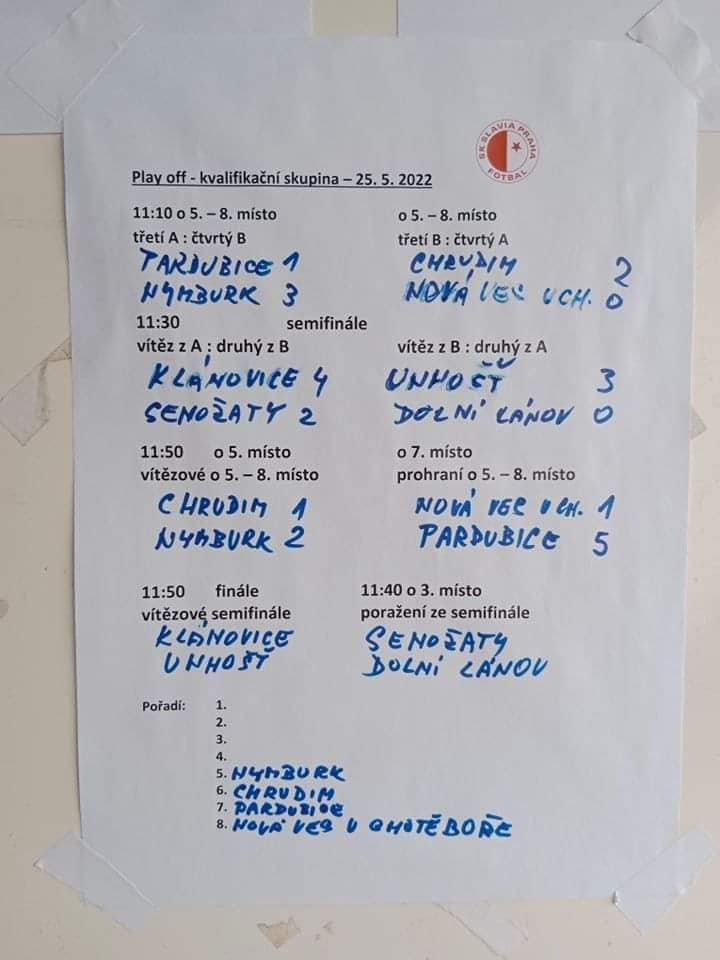 SK SLAVIA PRAHA
FOTBAL
Play off - kvalifikační skupina – 25. 5. 2022
11:10 o 5. – 8. místo
třetí A : čtvrtý B
PARDUBICE 1
NYMBURK 3
o 5. – 8. místo
třetí B : čtvrtý A
CHRUDIM 2
NOVÁ VES U CH. 0
11:30 semifinále
vítěz z A : druhý z B
KLÁNOVICE 4
SENOŽATY 2
vítěz z B : druhý z A
UNHOŠŤ 3
DOLNÍ LÁNOV 0
11:50 o 5. místo
vítězové o 5. – 8. místo
CHRUDIM 1
NYMBURK 2
o 7. místo
prohraní o 5. – 8. místo
NOVÁ VES U CH. 1
PARDUBICE 5
11:50 finále
vítězové semifinále
KLÁNOVICE
UNHOŠŤ
11:40 o 3. místo
poražení ze semifinále
SENOŽATY
DOLNÍ LÁNOV
Pořadí: 1.
2.
3.
4.
5. NYMBURK
6. CHRUDIM
7. PARDUBICE
8. NOVÁ VES U CHOTĚBOŘE